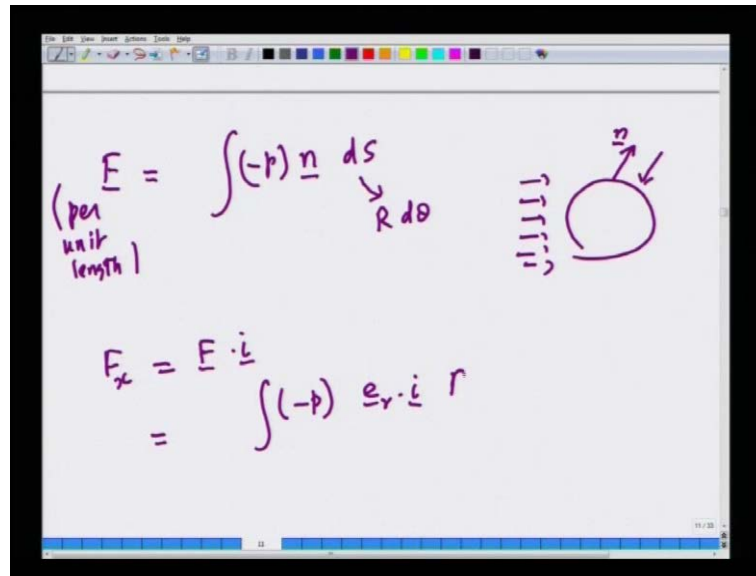 File Edit View Insert Actions Tools Help
B I
F = ∫(-p) n dS
(per unit length)
R dθ
n
F_x = F · i
= ∫(-p) e_r · i r
11/11
11